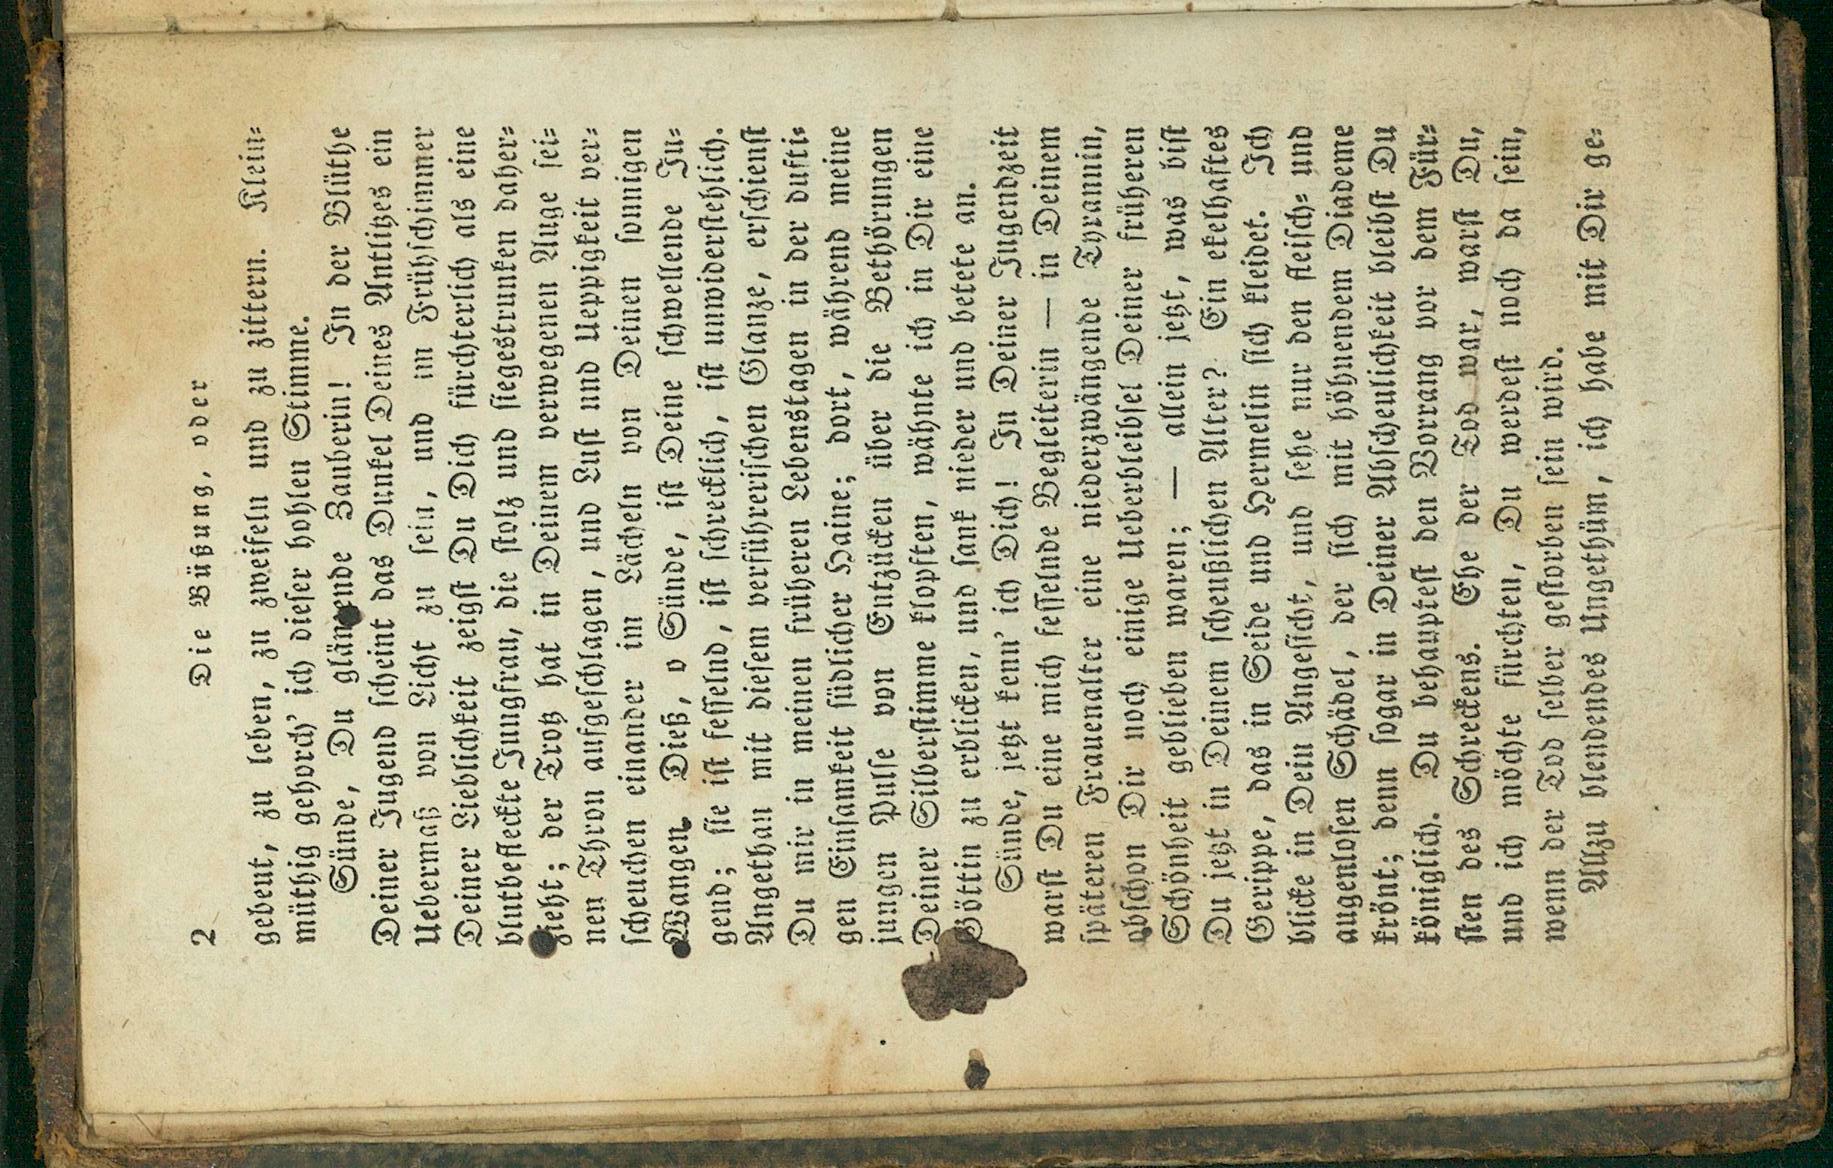 2
Die Büßung, oder
gebeut, zu leben, zu zweifeln und zu zittern. Klein-
müthig gehorch' ich dieser hohlen Stimme.
Sünde, Du glänzende Zauberin! In der Blüthe
Deiner Jugend scheint das Dunkel Deines Antlitzes ein
Uebermaß von Licht zu sein, und im Frühschimmer
Deiner Lieblichkeit zeigst Du Dich fürchterlich als eine
blutbefleckte Jungfrau, die stolz und siegestrunken daher-
zieht; der Trotz hat in Deinem verwegenen Auge sei-
nen Thron aufgeschlagen, und Lust und Ueppigkeit ver-
scheuchen einander im Lächeln von Deinen sonnigen
Wangen. Dieß, o Sünde, ist Deine schwellende Ju-
gend; sie ist fesselnd, ist schrecklich, ist unwiderstehlich.
Angethan mit diesem verführerischen Glanze, erschienst
Du mir in meinen früheren Lebenstagen in der dufti-
gen Einsamkeit südlicher Haine; dort, während meine
jungen Pulse von Entzücken über die Bethörungen
Deiner Silberstimme klopften, wähnte ich in Dir eine
Göttin zu erblicken, und sank nieder und betete an.
Sünde, jetzt kenn' ich Dich! In Deiner Jugendzeit
warst Du eine mich fesselnde Begleiterin — in Deinem
späteren Frauenalter eine niederzwängende Thrannin,
obschon Dir noch einige Ueberbleibsel Deiner früheren
Schönheit geblieben waren; — allein jetzt, was bist
Du jetzt in Deinem scheußlichen Alter? Ein ekelhaftes
Gerippe, das in Seide und Hermelin sich kleidet. Ich
blicke in Dein Angesicht, und sehe nur den fleisch- und
augenlosen Schädel, der sich mit höhnendem Diademe
krönt; denn sogar in Deiner Abscheulichkeit bleibst Du
königlich. Du behauptest den Vorrang vor dem Für-
sten des Schreckens. Ehe der Tod war, warst Du,
und ich möchte fürchten, Du werdest noch da sein,
wenn der Tod selber gestorben sein wird.
Allzu blendendes Ungethüm, ich habe mit Dir ge-